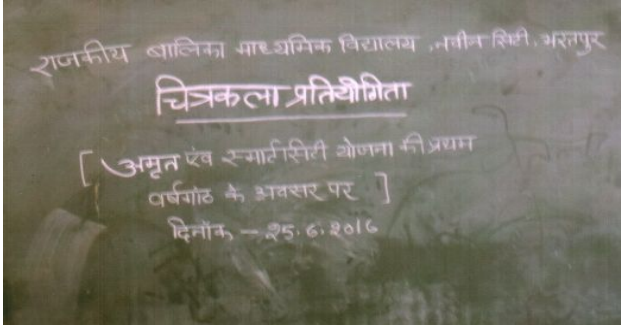 राजकीय बालिका माध्यमिक विद्यालय ,नवीन सिटी, भरतपुर
चित्रकला प्रतियोगिता
[ अमृत एंव स्मार्टसिटी योजना की प्रथम
वर्षगांठ के अवसर पर ]
दिनांक – २5.6.२०16